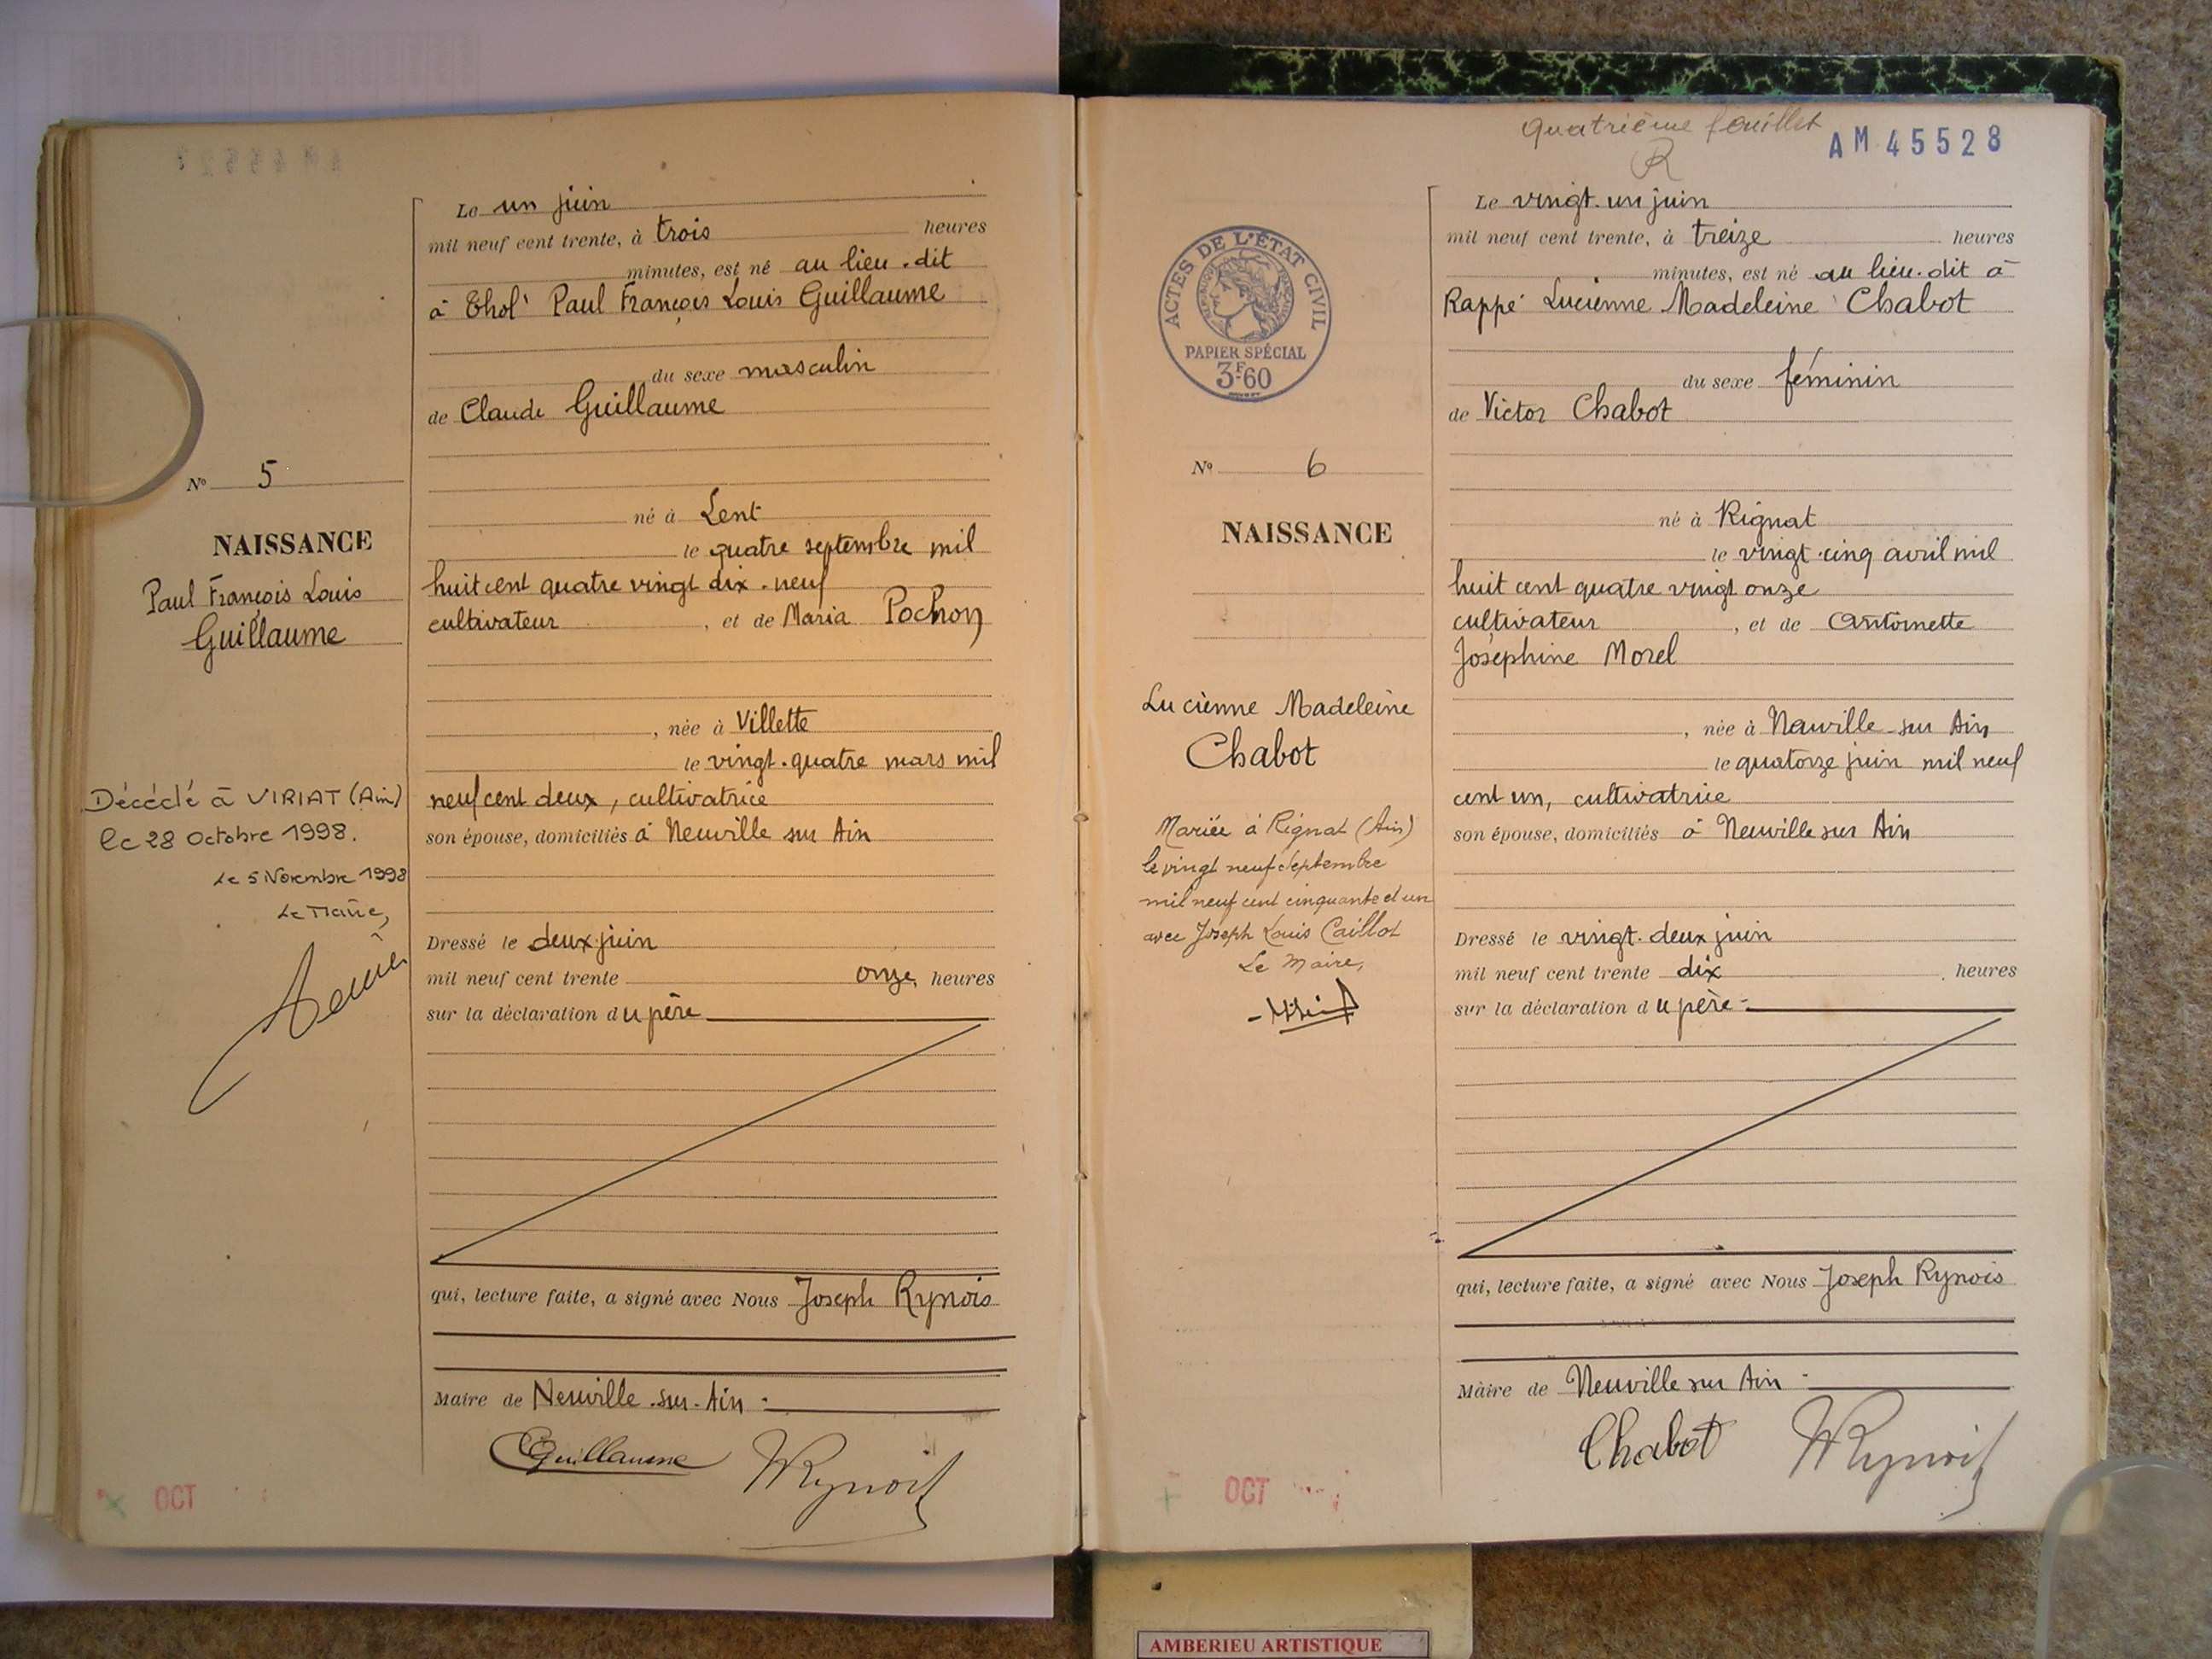 Le un juin
mil neuf cent trente, à trois heures
minutes, est né au lieu.dit
à Thol Paul François Louis Guillaume
du sexe masculin
de Claude Guillaume
né à Lent
le quatre septembre mil
huit cent quatre vingt dix-neuf
cultivateur , et de Maria Pochon
, née à Villette
le vingt-quatre mars mil
neuf cent deux, cultivatrice
son épouse, domiciliés à Neuville sur Ain
Dressé le deux juin
mil neuf cent trente onze heures
sur la déclaration du père
qui, lecture faite, a signé avec Nous Joseph Rynois
Maire de Neuville-sur-Ain
CGuillaume Rynois
N° 5
NAISSANCE
Paul François Louis
Guillaume
Décédé à VIRIAT (Ain)
le 28 Octobre 1998.
Le 5 Novembre 1998
Le Maire,
OCT
Quatrième feuillet
R
AM 45528
ACTES DE L'ÉTAT CIVIL
PAPIER SPÉCIAL
3F.60
N° 6
NAISSANCE
Lucienne Madeleine
Chabot
Mariée à Rignat (Ain)
le vingt neuf septembre
mil neuf cent cinquante et un
avec Joseph Louis Caillot
Le Maire,
OCT
Le vingt-un juin
mil neuf cent trente, à treize heures
minutes, est né au lieu-dit à
Rappe Lucienne Madeleine Chabot
du sexe féminin
de Victor Chabot
né à Rignat
le vingt-cinq avril mil
huit cent quatre vingt onze
cultivateur , et de Antoinette
Joséphine Morel
, née à Neuville-sur Ain
le quatorze juin mil neuf
cent un, cultivatrice
son épouse, domiciliés à Neuville sur Ain
Dressé le vingt-deux juin
mil neuf cent trente dix heures
sur la déclaration du père
qui, lecture faite, a signé avec Nous Joseph Rynois
Maire de Neuville sur Ain
Chabot Rynois
AMBERIEU ARTISTIQUE